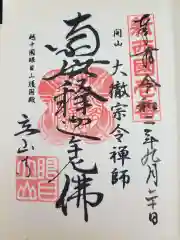 奉拝 令和三年九月六日
開山 大徹宗令禅師
南無釋迦牟尼佛
越中国眼目山護国殿
立山寺